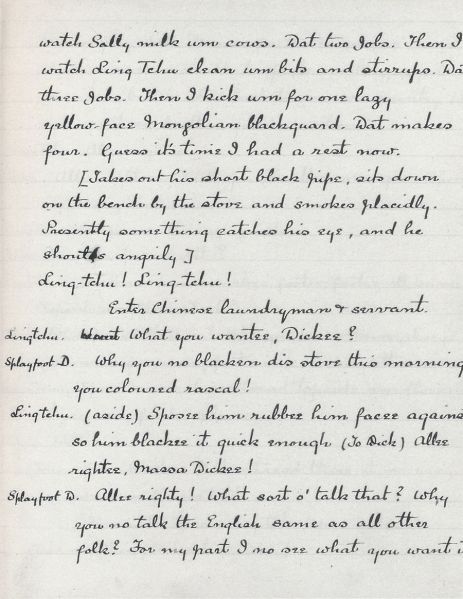 watch Sally milk um cows. Dat two jobs. Then I
watch Ling Tchu clean um bits and stirrups. Da
three jobs. Then I kick um for one lazy
yellow-face Mongolian blackguard. Dat makes
four. Guess it's time I had a rest now.
[Takes out his short black pipe, sits down
on the bench by the stove and smokes placidly.
Presently something catches his eye, and he
shouts angrily]
Ling-tchu! Ling-tchu!
Enter Chinese laundryman & servant.
Lingtchu. What you wantee, Dickee?
Splayfoot D. Why you no blacken dis stove this morning
you coloured rascal!
Lingtchu. (aside) Sposee him rubbee him facee agains
so him blackee it quick enough (To Dick) Allee
rightee, Massa Dickee!
Splayfoot D. Allee righty! What sort o' talk that? Why
you no talk the English same as all other
folk? For my part I no see what you want i